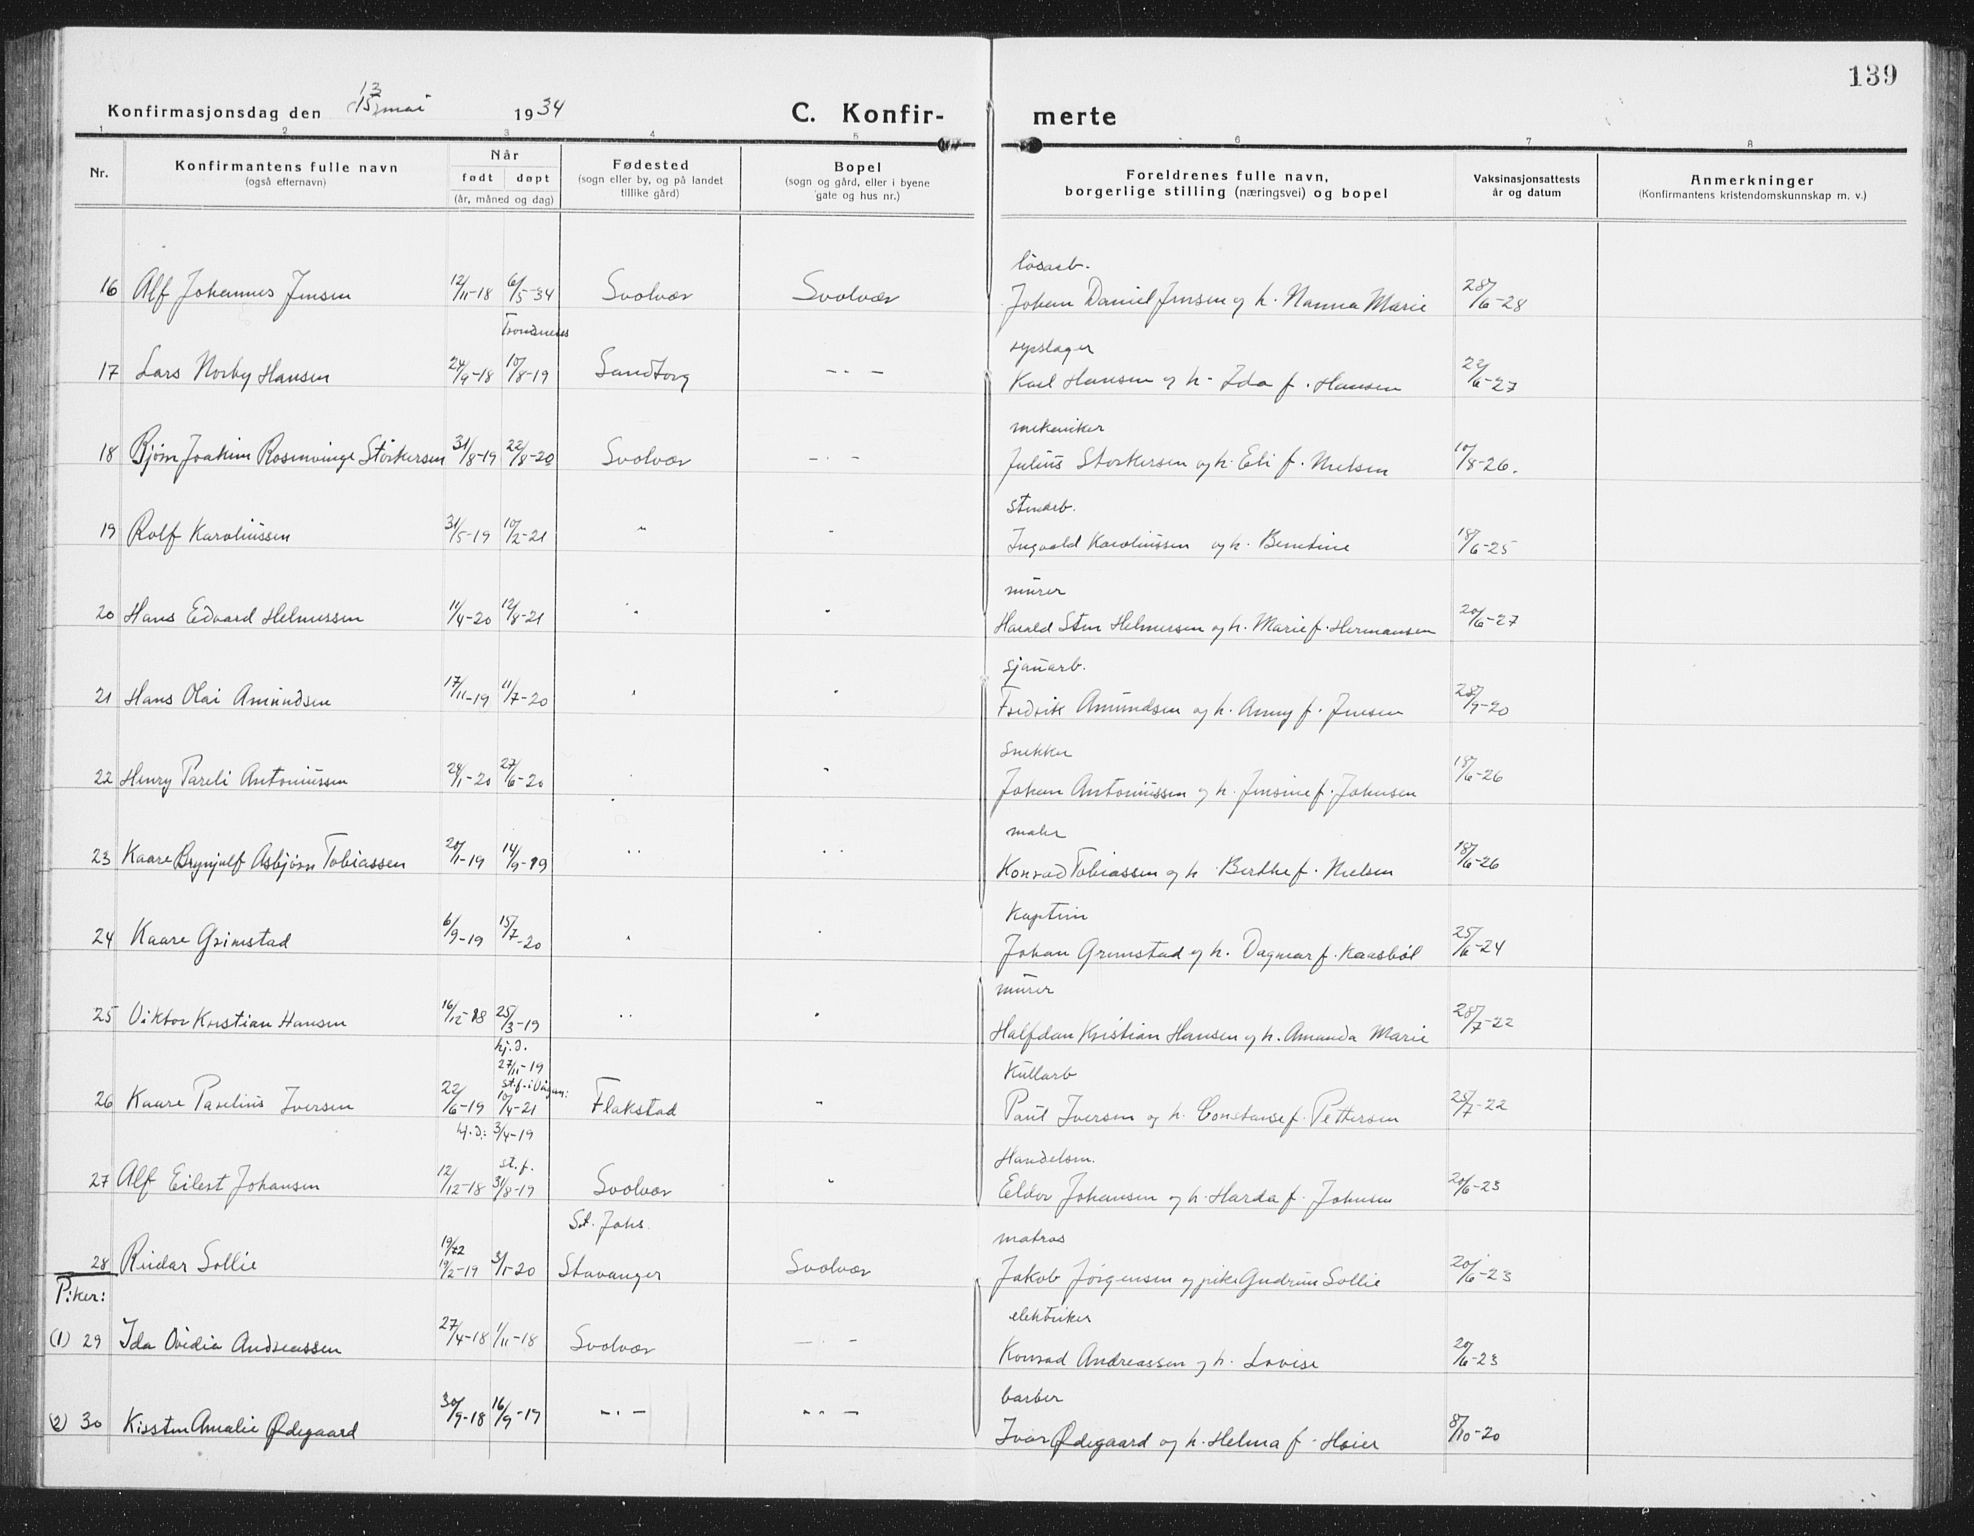 139
Konfirmasjonsdag den 13 15 mai 1934 C. Konfir- merte
1 2 3 4 5 6 7 8
Nr. Konfirmantens fulle navn (også efternavn) Når født døpt (år, måned og dag) Fødested (sogn eller by, og på landet tillike gård) Bopel (sogn og gård, eller i byene gate og hus nr.) Foreldrenes fulle navn, borgerlige stilling (næringsvei) og bopel Vaksinasjonsattests år og datum Anmerkninger (Konfirmantens kristendomskunnskap m. v.)
løsarb.
16 Alf Johannes Jensen 12/11-18 6/5-34 Svolvær Svolvær Johan Daniel Jensen og h. Nanna Marie 28/6-28
Trondenes
17 Lars Norby Hansen 24/9-18 10/8-19 Sandtorg -.- Karl Hansen og h. Ida f. Hansen 22/6-27
mekaniker
18 Bjørn Joakim Rosenvinge Størkersen 31/8-19 22/8-20 Svolvær -.- Julius Storkersen og h. Eli f. Nielsen 10/8-26.
stenarb.
19 Rolf Karoliussen 31/5-19 10/2-21 " - Ingvald Karoliussen og h. Benedine 18/6-25
murer
20 Hans Edvard Helmersen 11/4-20 12/8-21 " " Harald Sten Helmersen og h. Marie f. Hermansen 20/6-27
sjauarb.
21 Hans Olai Amundsen 17/11-19 11/7-20 " " Fredrik Amundsen og h. Anny f. Jensen 28/9-20
snekker
22 Henry Pareli Antoniussen 24/1-20 27/6-20 " Johan Antoniussen og h. Jensine f. Johnsen 18/6-26
maler
23 Kaare Brynjulf Asbjørn Tobiassen 20/1-19 14/9-19 " " Konrad Tobiassen og h. Berthe f. Nielsen 18/6-26
Kaptein
24 Kaare Grimstad 6/9-19 15/7-20 " " Johan Grimstad og h. Dagmar f. Kaasbøl 25/6-24
murer
25 Viktor Kristian Hansen 16/12-18 25/3-19 " " Halfdan Kristian Hansen og h. Amanda Marie 28/7-22
hj.d. 27/11-19
st.f. i Vågan: Kullarb
26 Kaare Parelius Iversen 22/6-19 10/4-21 Flakstad " Paul Iversen og h. Constanse f. Pettersen 25/7-22
hj.d.: 3/4-19
st.f. Handelsm.
27 Alf Eilert Johansen 12/12-18 31/8-19 Svolvær " Eldor Johansen og h. Harda f. Johnsen 20/6-23
St. Johs. matros
28 Reidar Sollie 19/12-19 3/1-20 Stavanger Svolvær Jakob Jørgensen og pike Gudrun Sollie 20/6-23
Piker:
elektriker
(1) 29 Ida Ovidia Andreassen 27/4-18 1/11-18 Svolvær -.- Konrad Andreassen og h. Lovise 20/6-23
barber
(2) 30 Kirsten Amalie Ødegaard 30/9-18 16/9-19 -.- -.- Ivar Ødegaard og h. Helma f. Høier 8/10-20